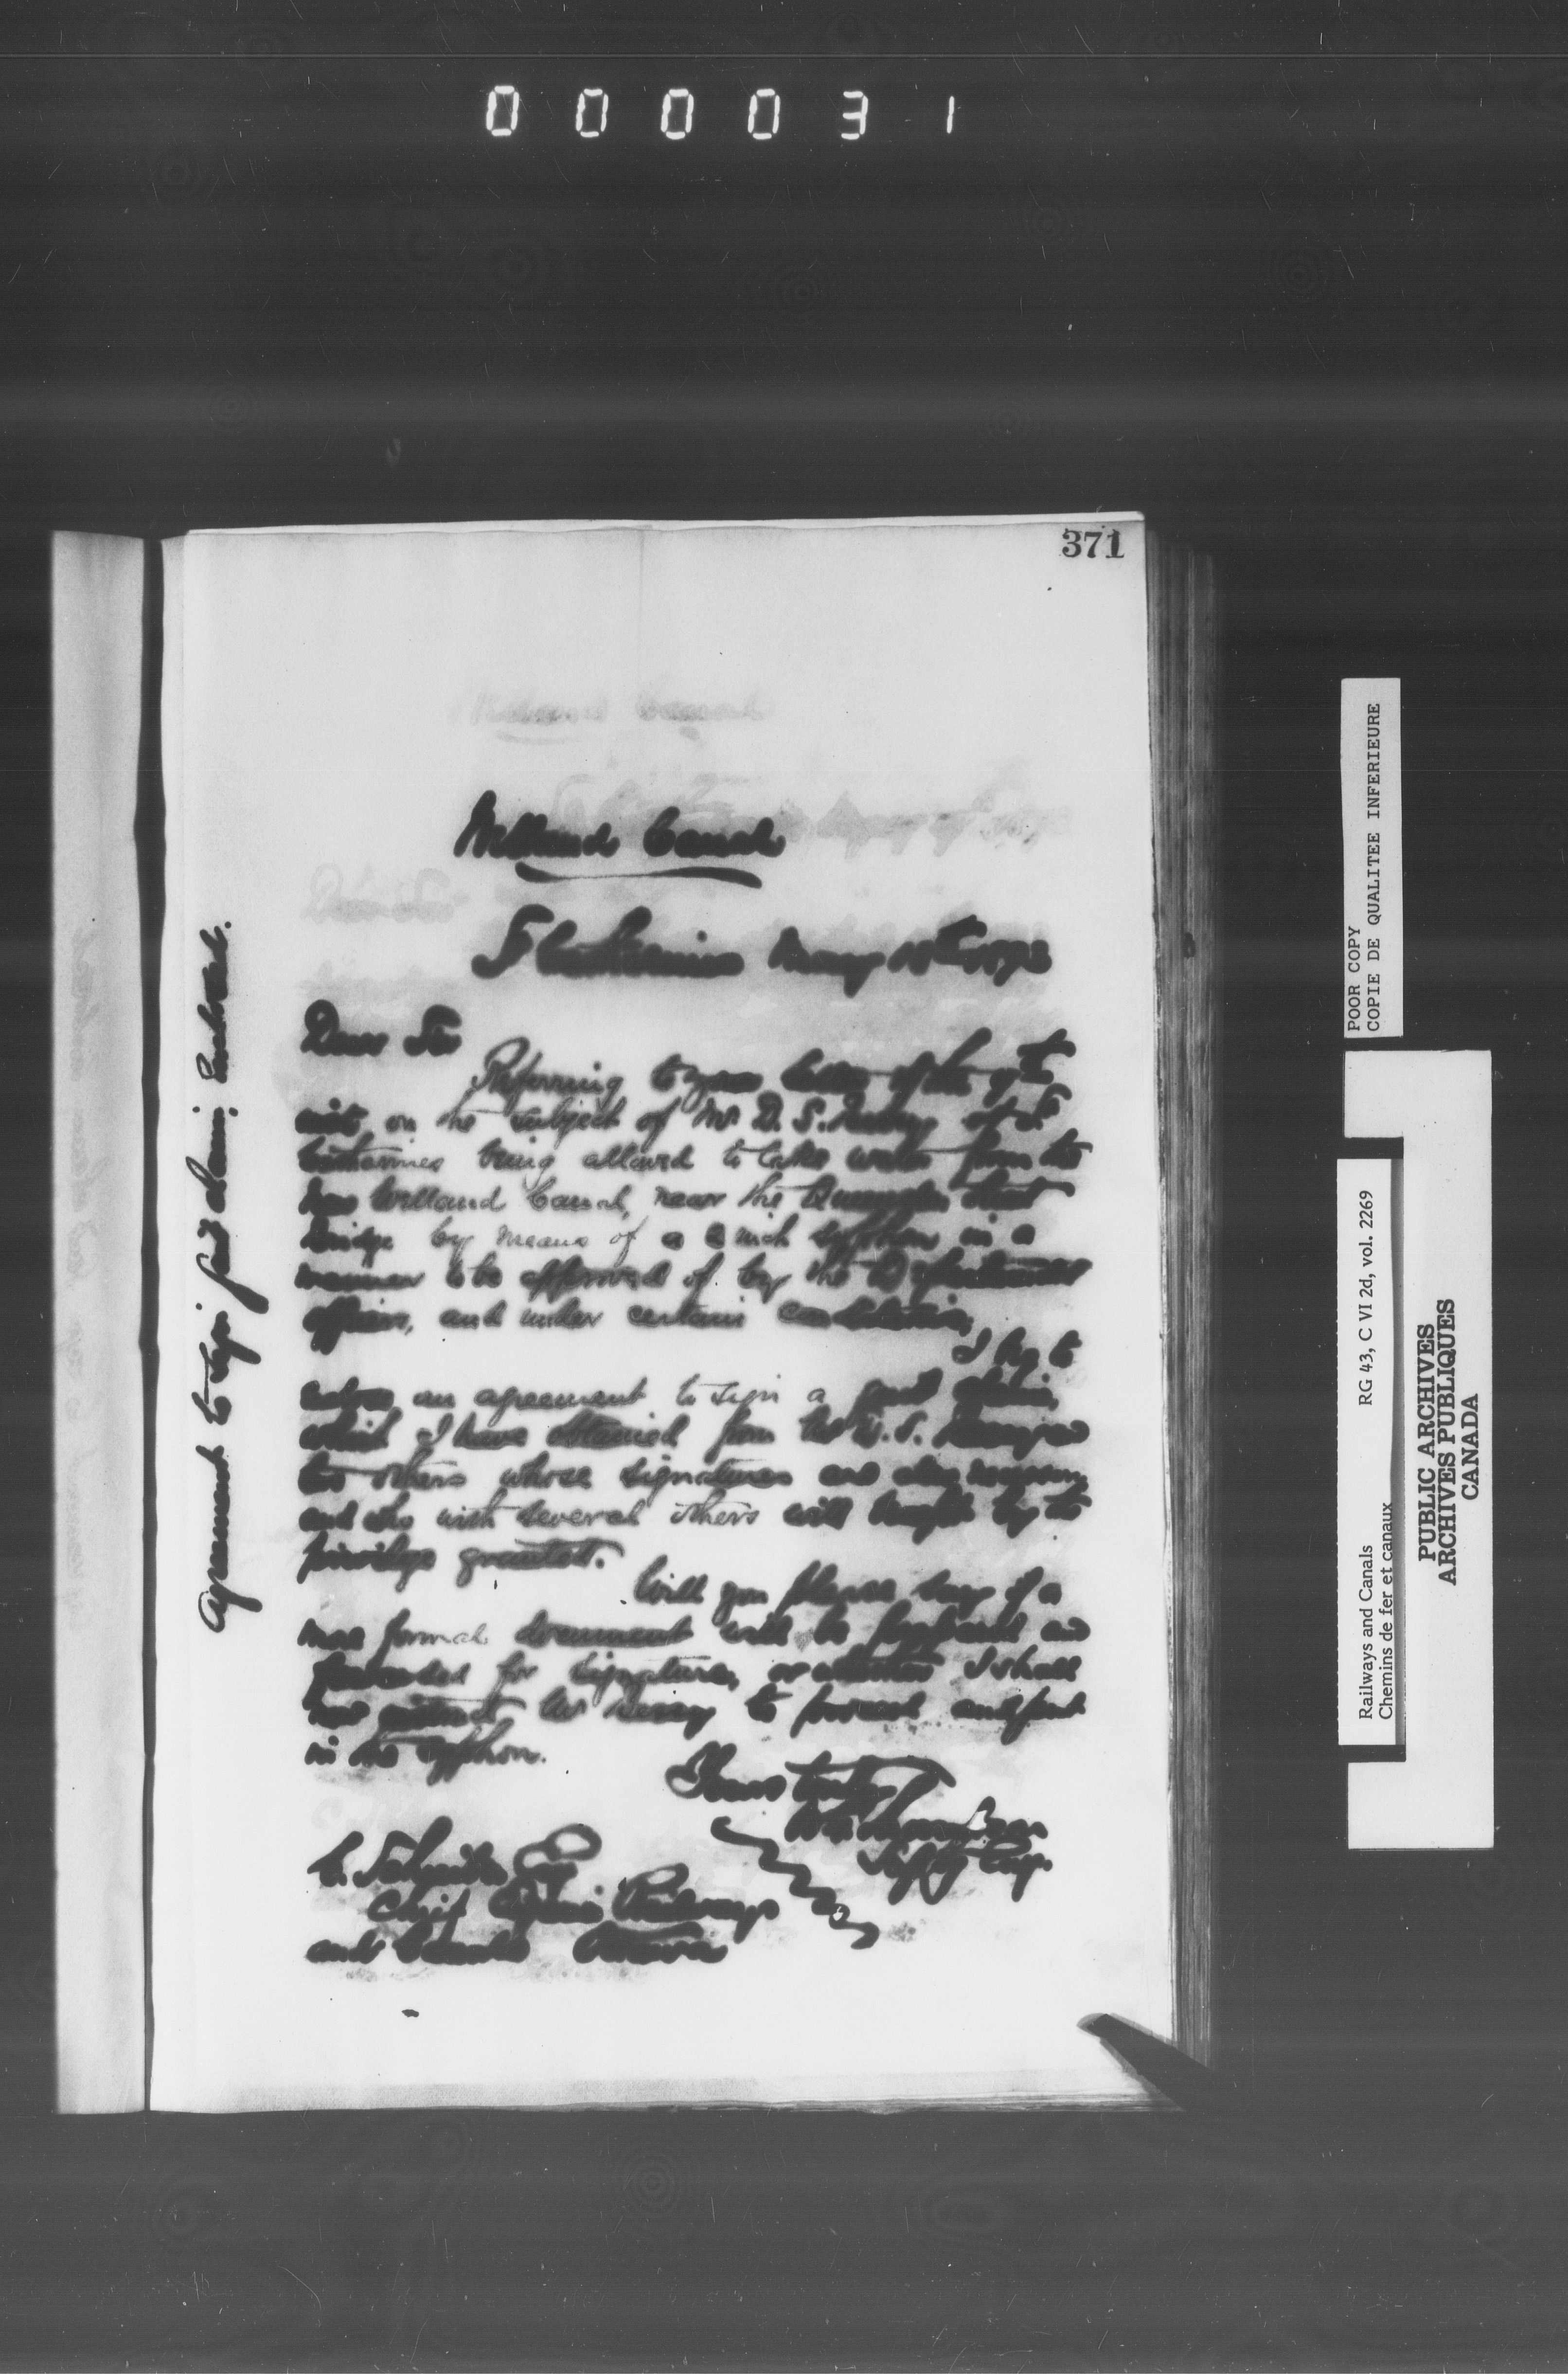 000031
371
Welland Canal
St Catharines May 18th 1893
Dear Sir
Referring to your letter of the 9th
inst, on the subject of Mr D. S. of St
Catharines being allowed to take water from the
new Welland Canal, near the street
bridge by means of a 2 inch syphon in a
manner to be approved of by the Department
officers, and under certain
I beg to
enclose an agreement to sign a quit claim,
which I have obtained from Mr D. S.
two others whose signatures are also
and who with several others will by the
privilege granted.
Will you please say if a
more formal document will be prepared and
forwarded for signature, or whether I shall
now Mr to proceed and put
in the syphon.
Yours truly
Supty Eng.
C. Schreiber Esq
Chief Engineer Railways
and Canals Ottawa
Agreement to sign quit claim enclosed.
POOR COPY
COPIE DE QUALITEE INFERIEURE
Railways and Canals RG 43, C VI 2d, vol. 2269
Chemins de fer et canaux
PUBLIC ARCHIVES
ARCHIVES PUBLIQUES
CANADA